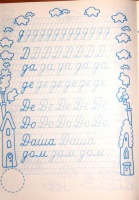 д д д д д д д д д
Д Д Д Д Д Д Д Д
да да да да да
де де де де де
Де Де Де Де Де
До До До До До
Даша Даша
дом, дом, дом